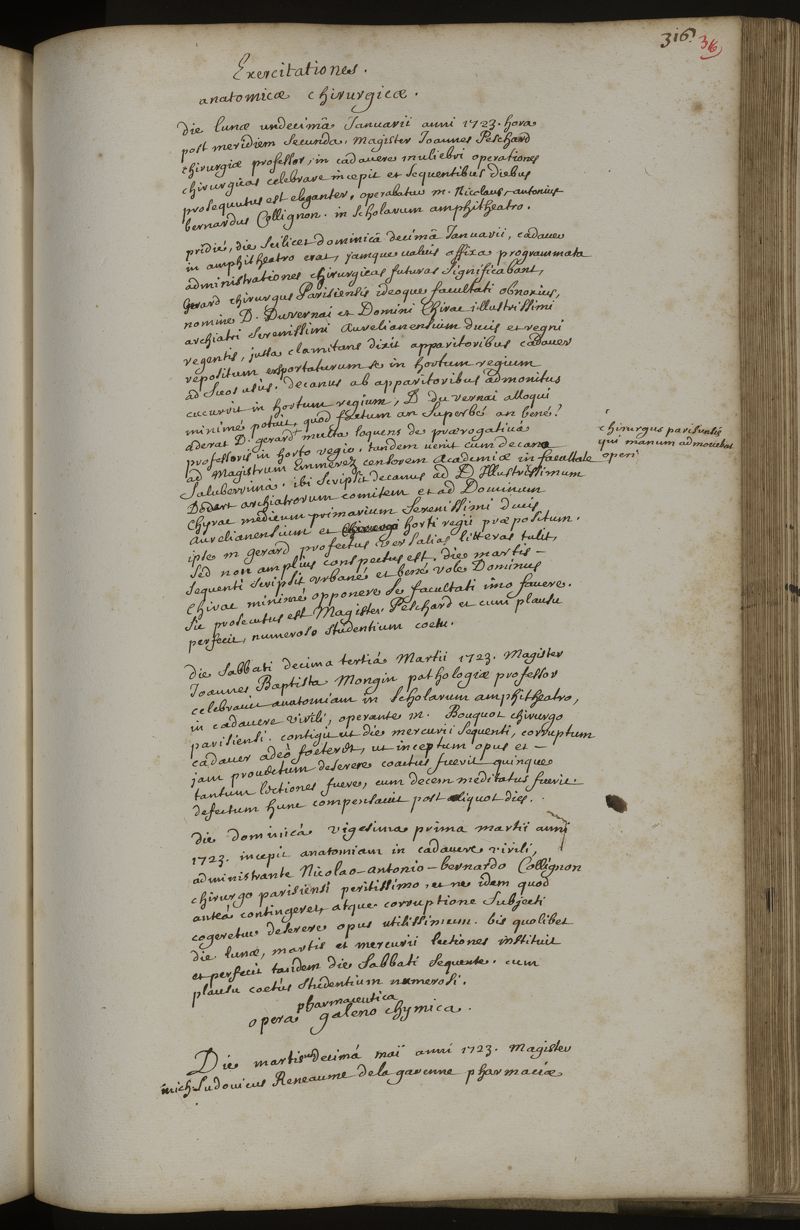 316
36
Exercitationes.
anatomicæ chirurgicæ.
die lunæ undecimâ Januarii anni 1723. hora
post meridiem secunda, Magister Joannes Peschard
chirurgiæ professor, in cadavere muliebri operationes
chirurgicas celebrare incepit et sequentibus diebus
prosequutus est eleganter, operabatur m. Nicolaus-antonius
bernardus Collignon. in scholarum amphitheatro.
pridie, die scilicet dominicâ decimâ Januarii, cadaver
in amphitheatro erat, jamque valvis affixa programmata
administrationes chirurgicas futuras significabant,
Gerard chirurgus Parisiensis ideoque facultati obnoxius,
nomine D. Duvernai et Domini Chirac illustrissimi
archiatri serenissimi Aurelianensium ducis et regni
regentis, jussa clamitans dixit apparitoribus cadaver
repositum exportaturum se in hortum regium
ad suos usus. decanus ab apparitoribus admonitus
cucurrit in hortum regium, D du vernai alloqui
minimè potuit, quod factum an superbè an benè?
aderat D. gerard multa loquens de prærogativâ
professoris in horto regio. tandem venit cum decano
ad Magistrum Emmerez censorem Academiæ in facultate
saluberrimâ. ibi scripsit decanus ad D Illustrissimum
Dodart archiatrorum comitem et ad Dominum
Chyrac medicum primarium serenissimi ducis
Aurelianensium et horti regii præpositum.
ipse m gerard profectus versalias litteras tulit,
sed non amplius conspectus est, die martis -
sequenti scripsit urbanè et benè vole Dominus
Chirac minimè opponere se facultati imo favere.
sic prosecutus est Magister Peschard et cum plausu
perfecit, numeroso studentium coetu.
chirurgus parisiensis
qui manum admovebat
operi
die sabbati decima tertiâ Martii 1723. Magister
Joannes Baptista Mongin pathologiæ professor
celebravit anatomiam in scholarum amphitheatro,
in cadavere virili, operante m. Bouquot chirurgo
parisiensi. contigit ut die mercurii sequenti, corruptum
cadaver adeò foeteret, ut inceptum opus et -
jam provectum deserere coactus fuerit quinque
tantum lectiones fuere, cum decem meditatus fuerit.
defectum hunc compensavit post aliquot dies.
die dominicâ vigesima prima martii anni
1723. incepit anatomiam in cadavere virili,
administrante Nicolao-antonio-bernardo Collignon
chirurgo parisiensi peritissimo, et ne idem quod
anteà contingeret, atque corruptione subjecti
cogeretur deserere opus utilissimum. bis quolibet
die lunæ, martis et mercurii lectiones instituit
et perfecit tandem die sabbati sequente. cum
plausu coetus studentium numerosi.
pharmaceutica
opera galeno chymica.
Die martis undecimâ maï anni 1723. Magister
mich Ludovicus Reneaume de la garenne pharmaciæ